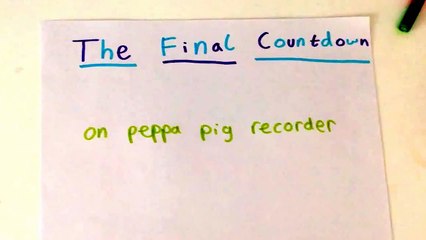 The Final Countdown
on peppa pig recorder